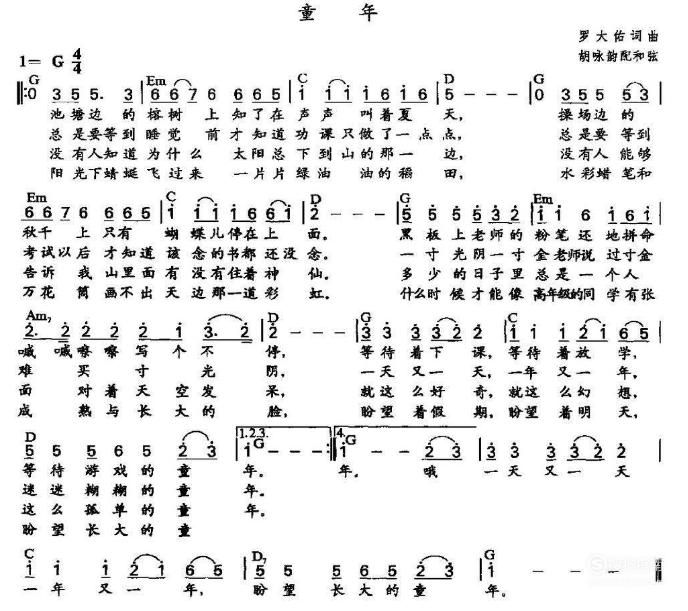 童 年
罗大佑词曲
1= G 4/4 胡咏韵配和弦
G Em C D G
0 3 5 5. 3 6 6 7 6 6 6 5 1 1 1 1 6 1 6 5 - - - 0 5 5 5 5 3
池塘边的榕树上知了在声声叫着夏天, 操场边的
总是要等到睡觉前才知道功课只做了一点点, 总是要等到
没有人知道为什么太阳总下到山的那一边, 没有人能够
阳光下蜻蜓飞过来一片片绿油油的稻田, 水彩蜡笔和
Em C D G Em
6 6 7 6 6 6 5 1 1 1 1 6 6 1 2 - - - 5 5 5 5 3 2 1 1 6 1 6 1
秋千上只有蝴蝶儿停在上面。 黑板上老师的粉笔还地拼命
考试以后才知道该念的书都还没念。 一寸光阴一寸金老师说过寸金
告诉我山里面有没有住着神仙。 多少的日子里总是一个人
万花筒画不出天边那一道彩虹。 什么时候才能像高年级的同学有张
Am7 D G C
2. 2 2 2 2 1 3. 2 2 - - - 3 3 3 3 2 3 1 1 2 1 6 5
嘁嘁嚓嚓写个不停, 等待着下课,等待着放学,
难买寸光阴, 一天又一天,一年又一年,
面对着天空发呆, 就这么好奇,就这么幻想,
成熟与长大的脸, 盼望着假期,盼望着明天,
D 1.2.3. G 4. G
5 5 5 6 5 2 3 1 - - - 1 - - 2 3 3 3 3 3 2 2
等待游戏的童年。 年。 哦 一天又一天
迷迷糊糊的童年。
这么孤单的童年。
盼望长大的童
C D7 G
1 1 1 1 2 1 6 5 5 5 5 6 5 2 3 1 - - -
一年又一年, 盼望长大的童年。